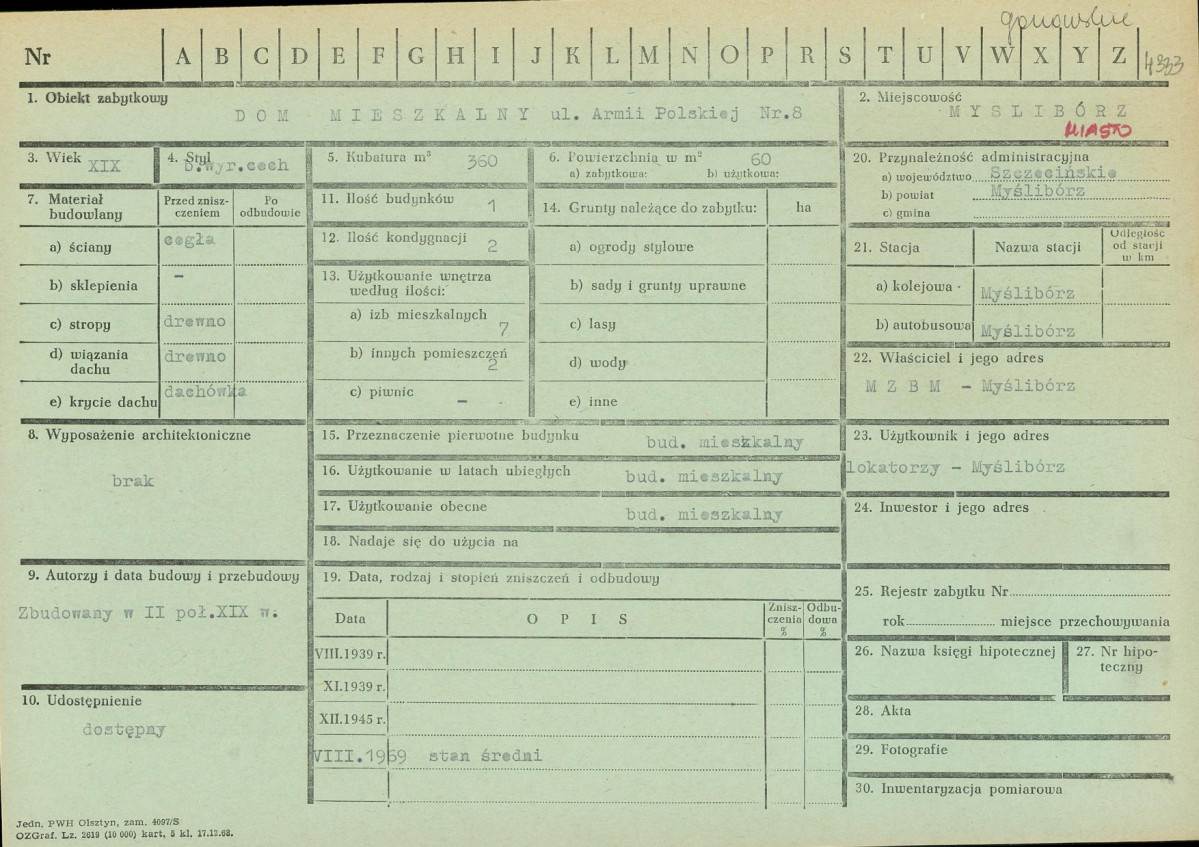 gorzowskie
Nr A B C D E F G H I J K L M N O P R S T U V W X Y Z 4333
1. Obiekt zabytkowy
DOM MIESZKALNY ul. Armii Polskiej Nr.8
2. Miejscowość
MYSLIBÓRZ
MIASTO
3. Wiek XIX
4. Styl
b.wyr.cech
5. Kubatura m³ 360
6. Powierzchnia w m² 60
a) zabytkowa: b) użytkowa:
7. Materiał budowlany
Przed zniszczeniem
Po odbudowie
a) ściany cegła
b) sklepienia –
c) stropy drewno
d) wiązania dachu drewno
e) krycie dachu dachówka
8. Wyposażenie architektoniczne
brak
9. Autorzy i data budowy i przebudowy
Zbudowany w II poł.XIX w.
10. Udostępnienie
dostępny
11. Ilość budynków 1
12. Ilość kondygnacji 2
13. Użytkowanie wnętrza
według ilości:
a) izb mieszkalnych 7
b) innych pomieszczeń 2
c) piwnic –
14. Grunty należące do zabytku: ha
a) ogrody stylowe
b) sady i grunty uprawne
c) lasy
d) wody
e) inne
15. Przeznaczenie pierwotne budynku bud. mieszkalny
16. Użytkowanie w latach ubiegłych bud. mieszkalny
17. Użytkowanie obecne bud. mieszkalny
18. Nadaje się do użycia na
19. Data, rodzaj i stopień zniszczeń i odbudowy
Data OPIS Zniszczenia % Odbudowa %
VIII.1939 r.
XI.1939 r.
XII.1945 r.
VIII.1959 stan średni
20. Przynależność administracyjna
a) województwo Szczecińskie
b) powiat Myślibórz
c) gmina
21. Stacja Nazwa stacji Odległość od stacji w km
a) kolejowa Myślibórz
b) autobusowa Myślibórz
22. Właściciel i jego adres
M Z B M – Myślibórz
23. Użytkownik i jego adres
lokatorzy – Myślibórz
24. Inwestor i jego adres
25. Rejestr zabytku Nr
rok miejsce przechowywania
26. Nazwa księgi hipotecznej
27. Nr hipoteczny
28. Akta
29. Fotografie
30. Inwentaryzacja pomiarowa
Jedn. PWH Olsztyn, zam. 4097/S
OZGraf. Lz. 2619 (10 000) kart, 5 kl. 17.12.68.